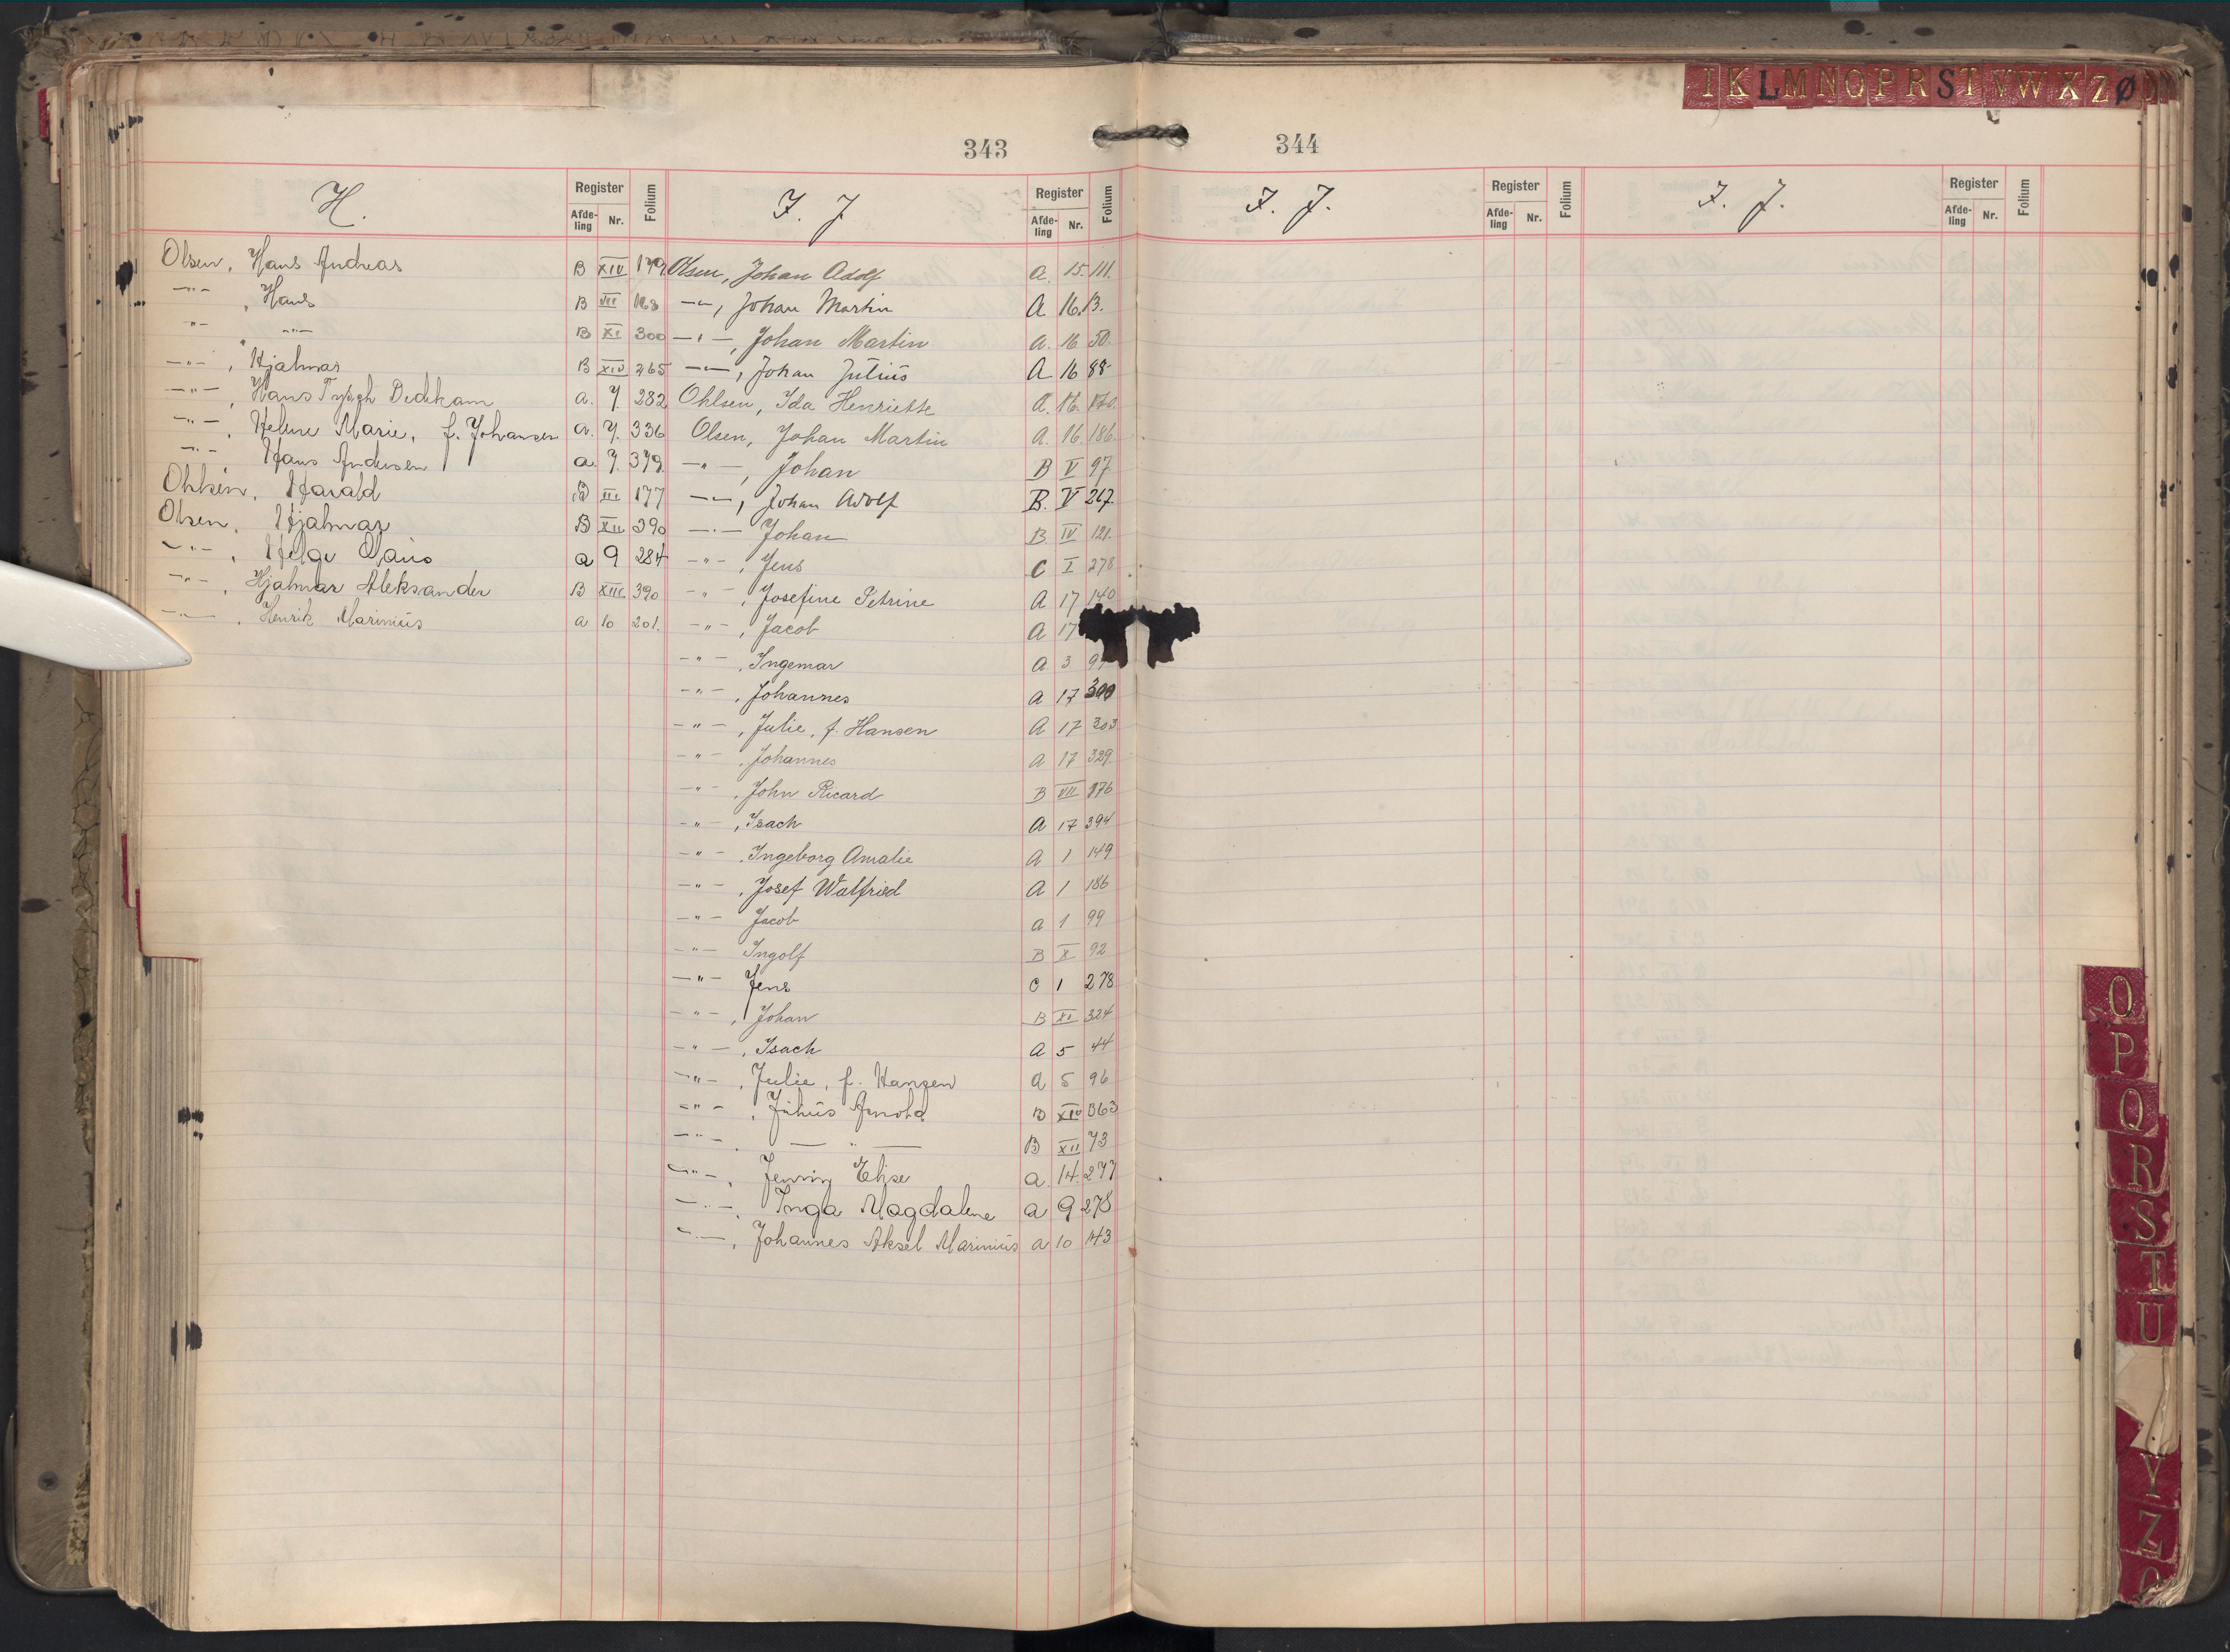 I K L M N O P R S T V W X Z Ø
343
H.
Register
Afde-
ling
Nr.
Folium
Olsen, Hans Andreas B XIV 179.
-"- , Hans B VII
-"- , -"- B XI 300
-"- , Hjalmar B XIV 265
-"- , Hans Dedekam a. 7. 282
-"- , Helene Marie, f. Johansen a. 7. 336
-"- Hans Andersen a. 7. 379.
Ohlsen, Harald B III 177
Olsen, Hjalmar B XII 390
-"- , Helge a 9 284
-"- , Hjalmar Aleksander B XIII 390
-"- , Henrik Marinius a 10 201.
I. J
Register
Afde-
ling
Nr.
Folium
Olsen, Johan Adolf a. 15. 111.
-"-, Johan Martin A 16. 13.
-"-, Johan Martin a. 16 50.
-"-, Johan Julius A 16 88-
Ohlsen, Ida Henriette A. 16. 170.
Olsen, Johan Martin A. 16. 186.
-"-, Johan B V 97.
-"-, Johan Adolf B. V 267.
-"- Johan B. IV 121.
-"-, Jens C I 278
-"-, Josefine Petrine A 17 140
-"-, Jacob A 17
-"-, Ingemar A 3
-"-, Johannes A 17 300
-"-, Julie, f. Hansen A 17 303
-"-, Johannes A 17 329.
-"-, John Ricard B VII 176
-"-, Isach A 17 394
-"-, Ingeborg Amalie A 1 149
-"-, Josef Walfried A 1 186
-"- Jacob a 1 99
-"- Ingolf B X 92
-"- Jens C 1 278
-"-, Johan B XI 324
-"-, Isach A 5 44
-"-, Julie, f. Hansen a 5 96
-"-, Julius Arnold B XIV 363
-"-, — " — B XII 73
-"-, Jenny Elise a. 14. 277
-"-, Inga Magdalene a 9 278
-"-, Johannes Aksel Marinius a 10 143
344
I. J.
Register
Afde-
ling
Nr.
Folium
I. J.
Register
Afde-
ling
Nr.
Folium
O
P
Q
R
S
T
U
Y
Z